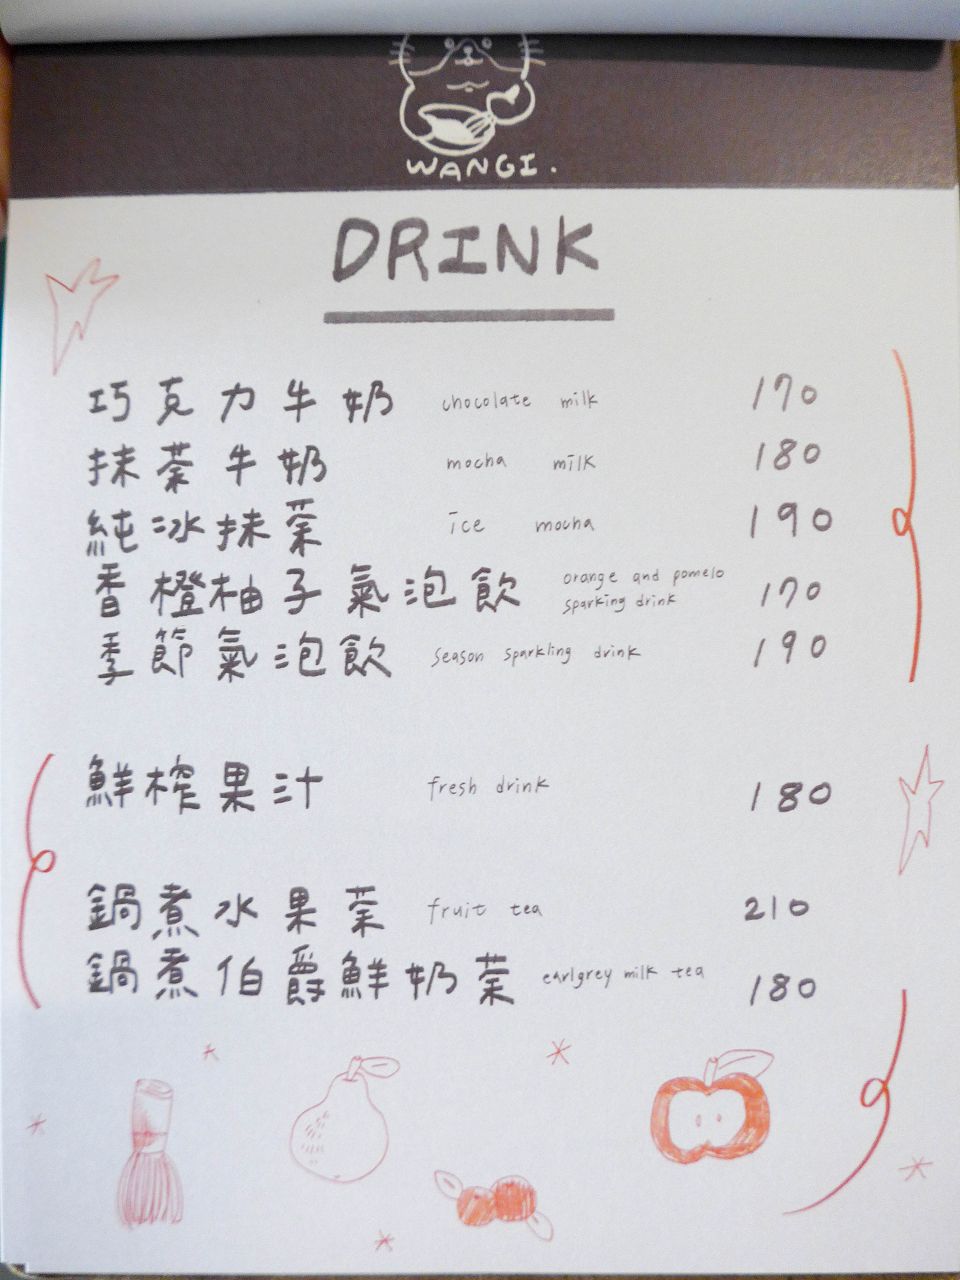 WANGI.
DRINK
巧克力牛奶 chocolate milk 170
抹茶牛奶 mocha milk 180
純冰抹茶 ice mocha 190
香橙柚子氣泡飲 orange and pomelo sparking drink 170
季節氣泡飲 season sparkling drink 190
鮮榨果汁 fresh drink 180
鍋煮水果茶 fruit tea 210
鍋煮伯爵鮮奶茶 earlgrey milk tea 180